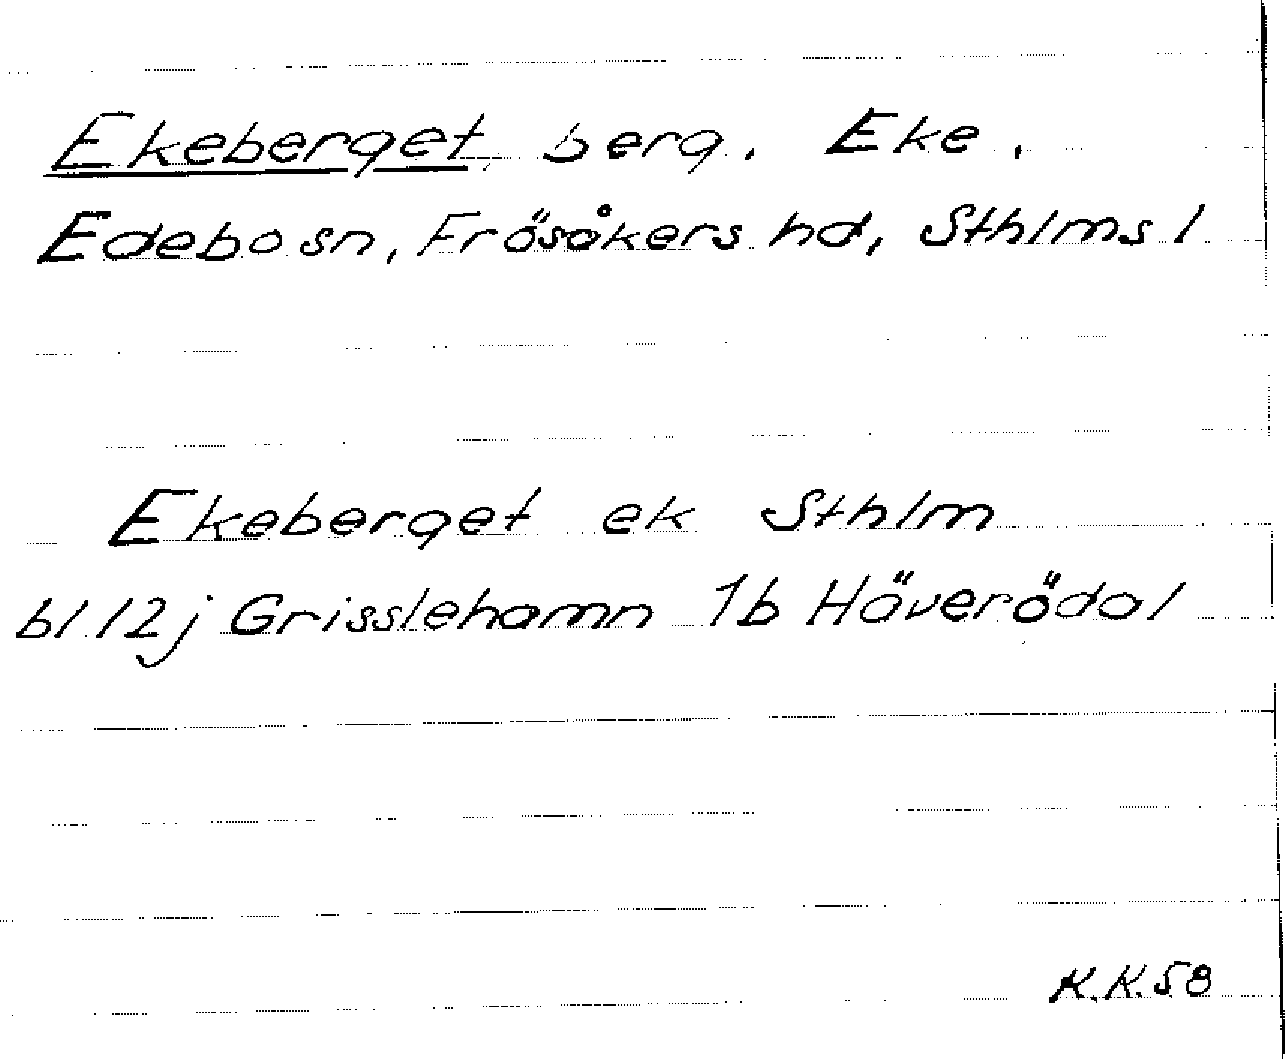 Ekeberget, berg. Eke,
Edebo sn, Frösåkers hd, Sthlms l
Ekeberget ek Sthlm
bl 12j Grisslehamn 1b Häverödal
K.K.58